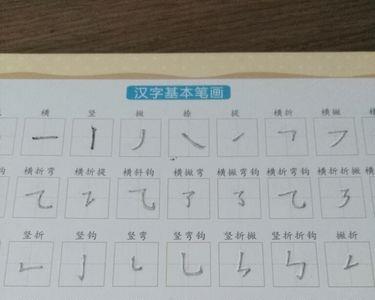 汉字基本笔画
横 竖 撇 捺 提 横折 横撇
钩 横折弯 横折提 横斜钩 横撇弯 横撇弯钩 横折弯钩 横折折撇
竖折 竖钩 竖弯 竖弯钩 竖折撇 竖折折钩 撇折